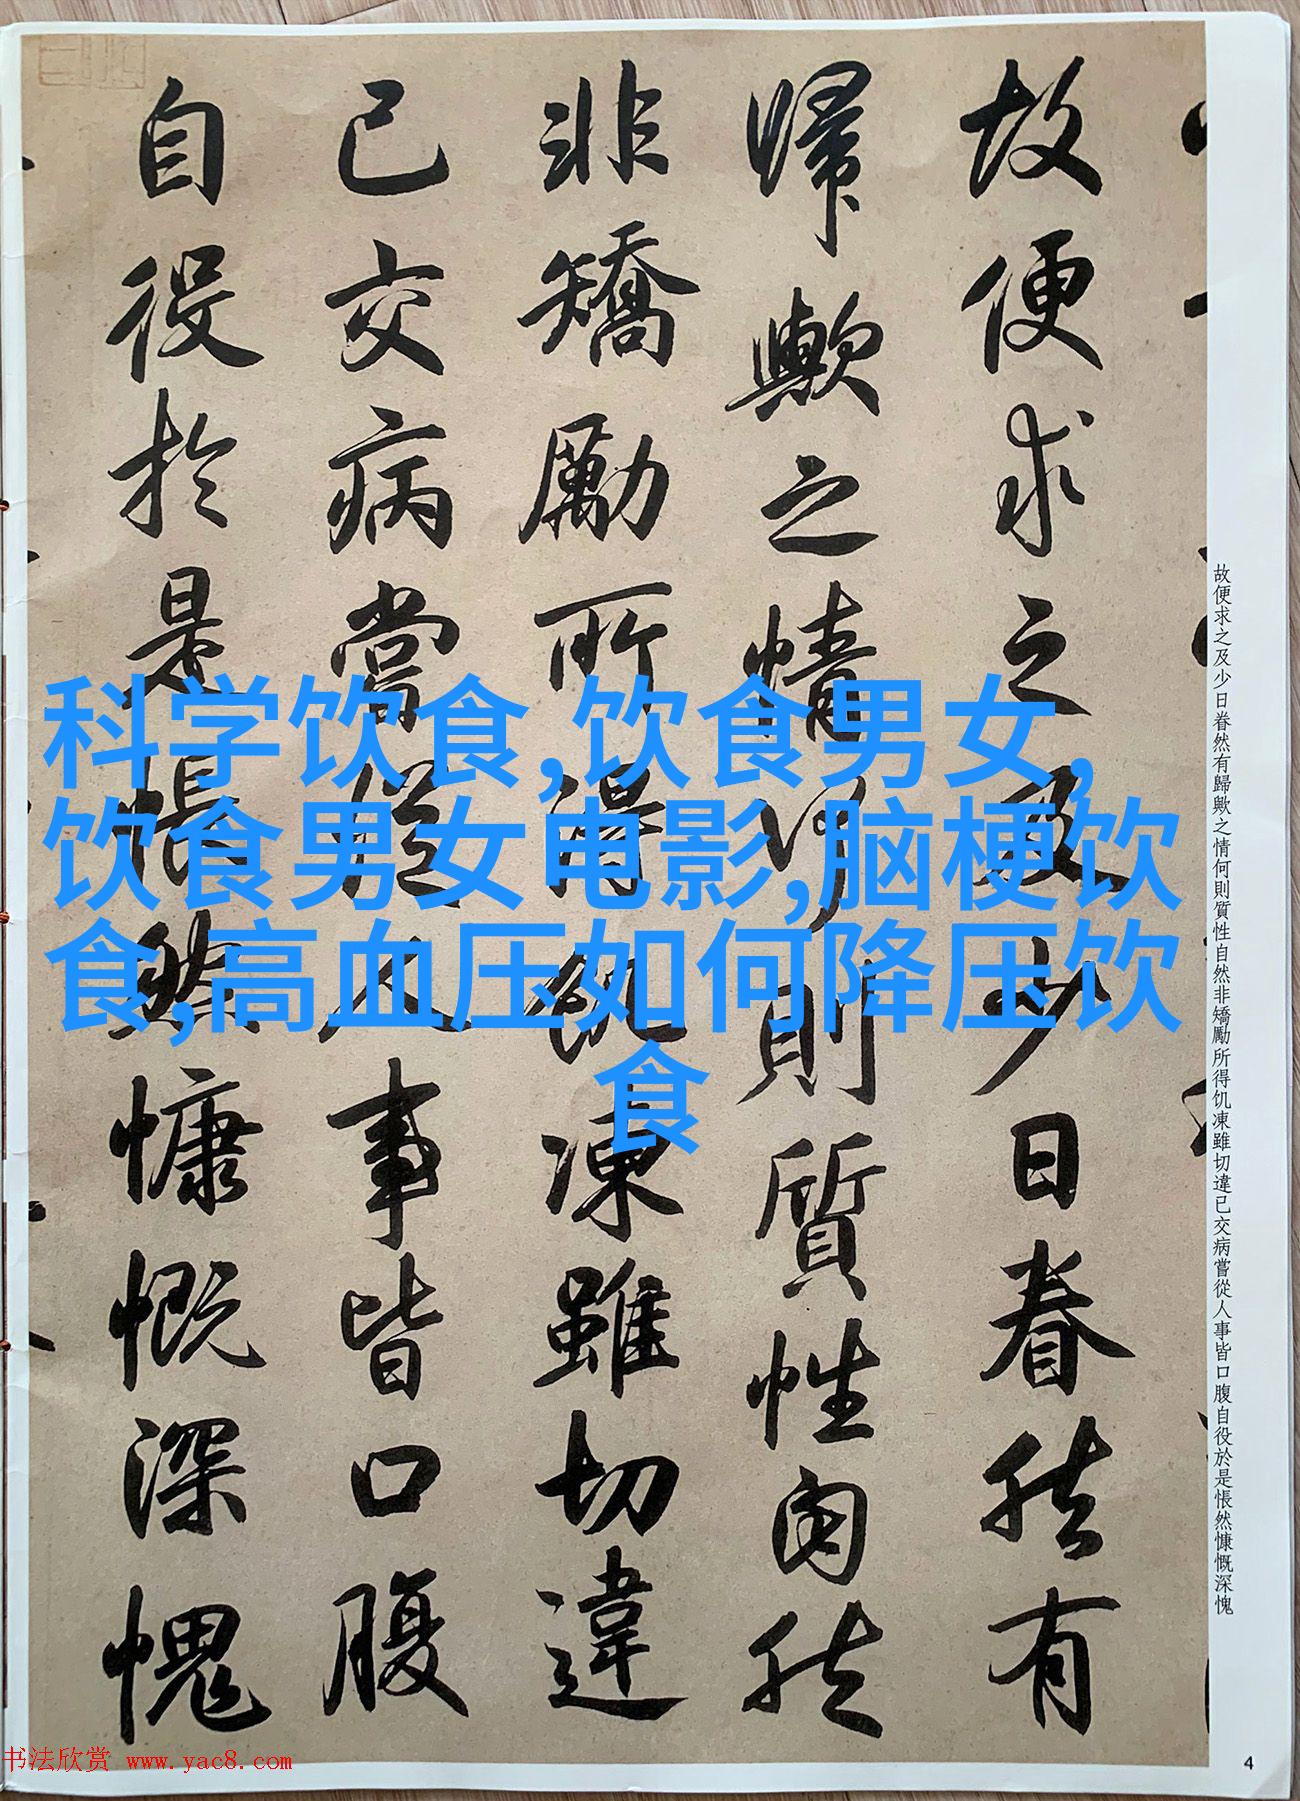 故便求之及少日眷然有
歸歟之情何則質性自然
非矯勵所得飢凍雖切違
已交病嘗從人事皆口腹
自役於是悵然慷慨深愧
故便求之及少日眷然有歸歟之情何則質性自然非矯勵所得饥凍雖切違已交病嘗從人事皆口腹自役於是悵然慷慨深愧
科学饮食,饮食男女,
饮食男女电影,脑梗饮
食,高血压如何降压饮
食
书法欣赏 www.yac8.com
4